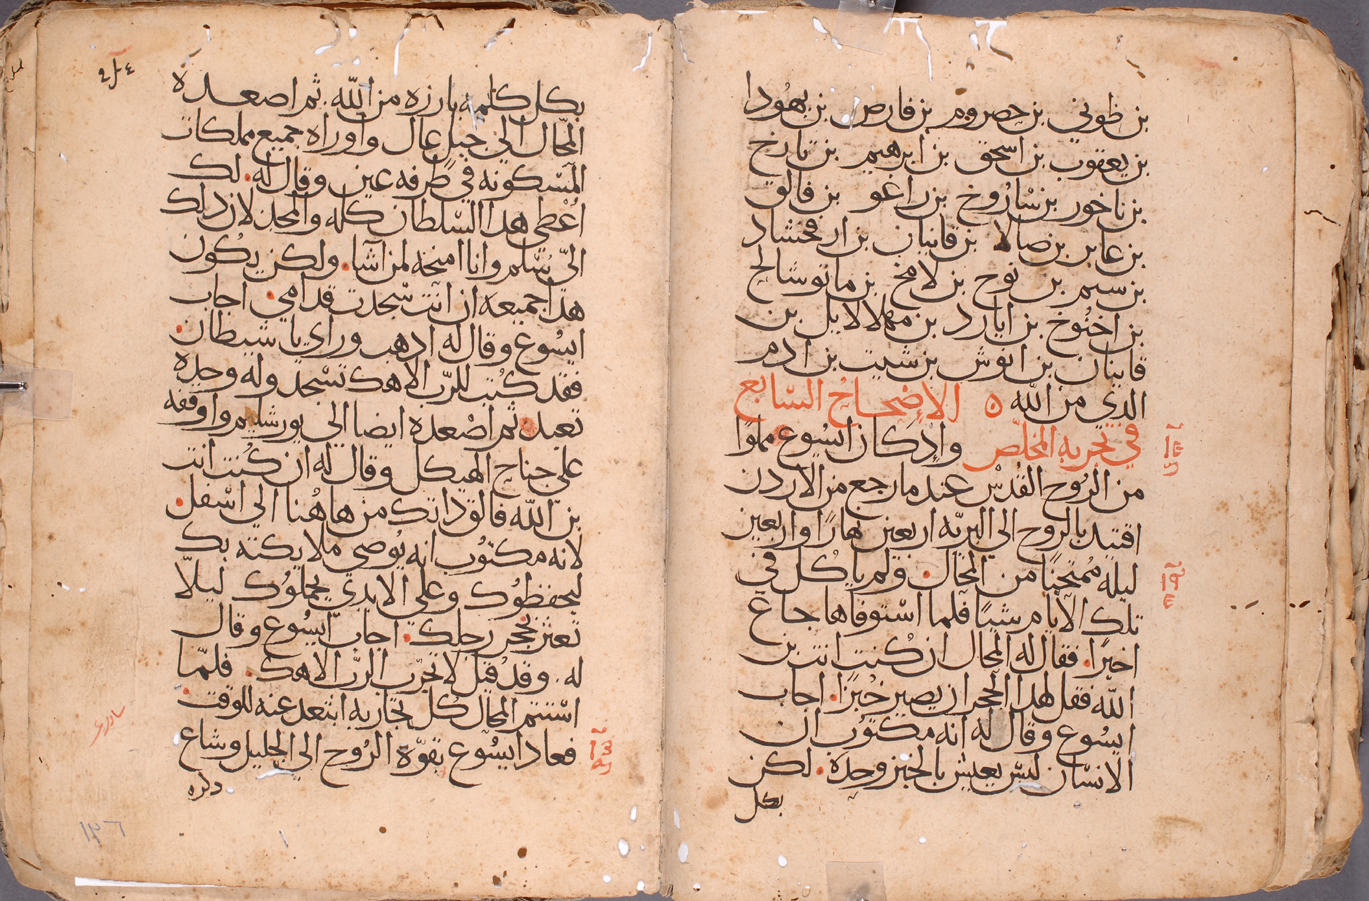 بن طوني بن حصروم بن فارص بن يهودا
بن يعقوب بن اسحق بن ابرهيم بن تارخ
بن ناخور بن ساروخ بن راغو بن فالق
بن عابر بن صالا بن قاينان بن ارفخشاد
بن سيم بن نوح بن لامخ بن ماتوشالح
بن اخنوخ بن ايارد بن مهلالايل بن
قاينان بن انوش بن شيت بن ادم
الذي من الله ٥ الاصحاح السابع
في تجربه المخلص واذ كان ايسوع مملوا
من الروح القدس عند ما رجع من الاردن
اقتيد بالروح الي البريه اربعين نهارا واربعين
ليله ممتحنا من المحال. ولم ياكل في
تلك الايام شيا فلما استوفاها جاع
اخيرا. فقال له المحال ان كنت انت بن
الله فقل لهذا الحجر ان يصير خبزا. اجاب
ايسوع وقال له انه مكتوب ان
الانسان ليس يعيش بالخبز وحده. لكن
بكل
بكل كلمه بارزه من الله. ثم اصعده
المحال الي جبل عال واوراه جميع مملكات
المسكونه في طرفه عين وقال له. لك
اعطي هدا السلطان كله والمجد لان دلك
الي سلم وانا امنحه لمن اشا. ولكن يكون
هدا جميعه ان انت سجدت قدامي. اجاب
ايسوع وقال له ادهب وراي يا شيطان.
فقد كتب للرب الاهك تسجد وله وحده
تعبد ثم اصعده ايضا الي يورشليم واوقفه
علي جناح الهيكل وقال له ان كنت انت
بن الله فالق داتك من هاهنا الي اسفل.
لانه مكتوب انه يوصي ملايكته بك
ليحفظوك وعلي الايدي يحملوك ليلا
تعثر بحجر رجلك. اجاب ايسوع وقال
له. وقد قيل لا تجرب الرب الاهك. فلما
استتم المحال كل تجاربه ابتعد عنه للوقت.
فعاد ايسوع بقوة الروح الي الجليل وشاع
دكره
١٣٦